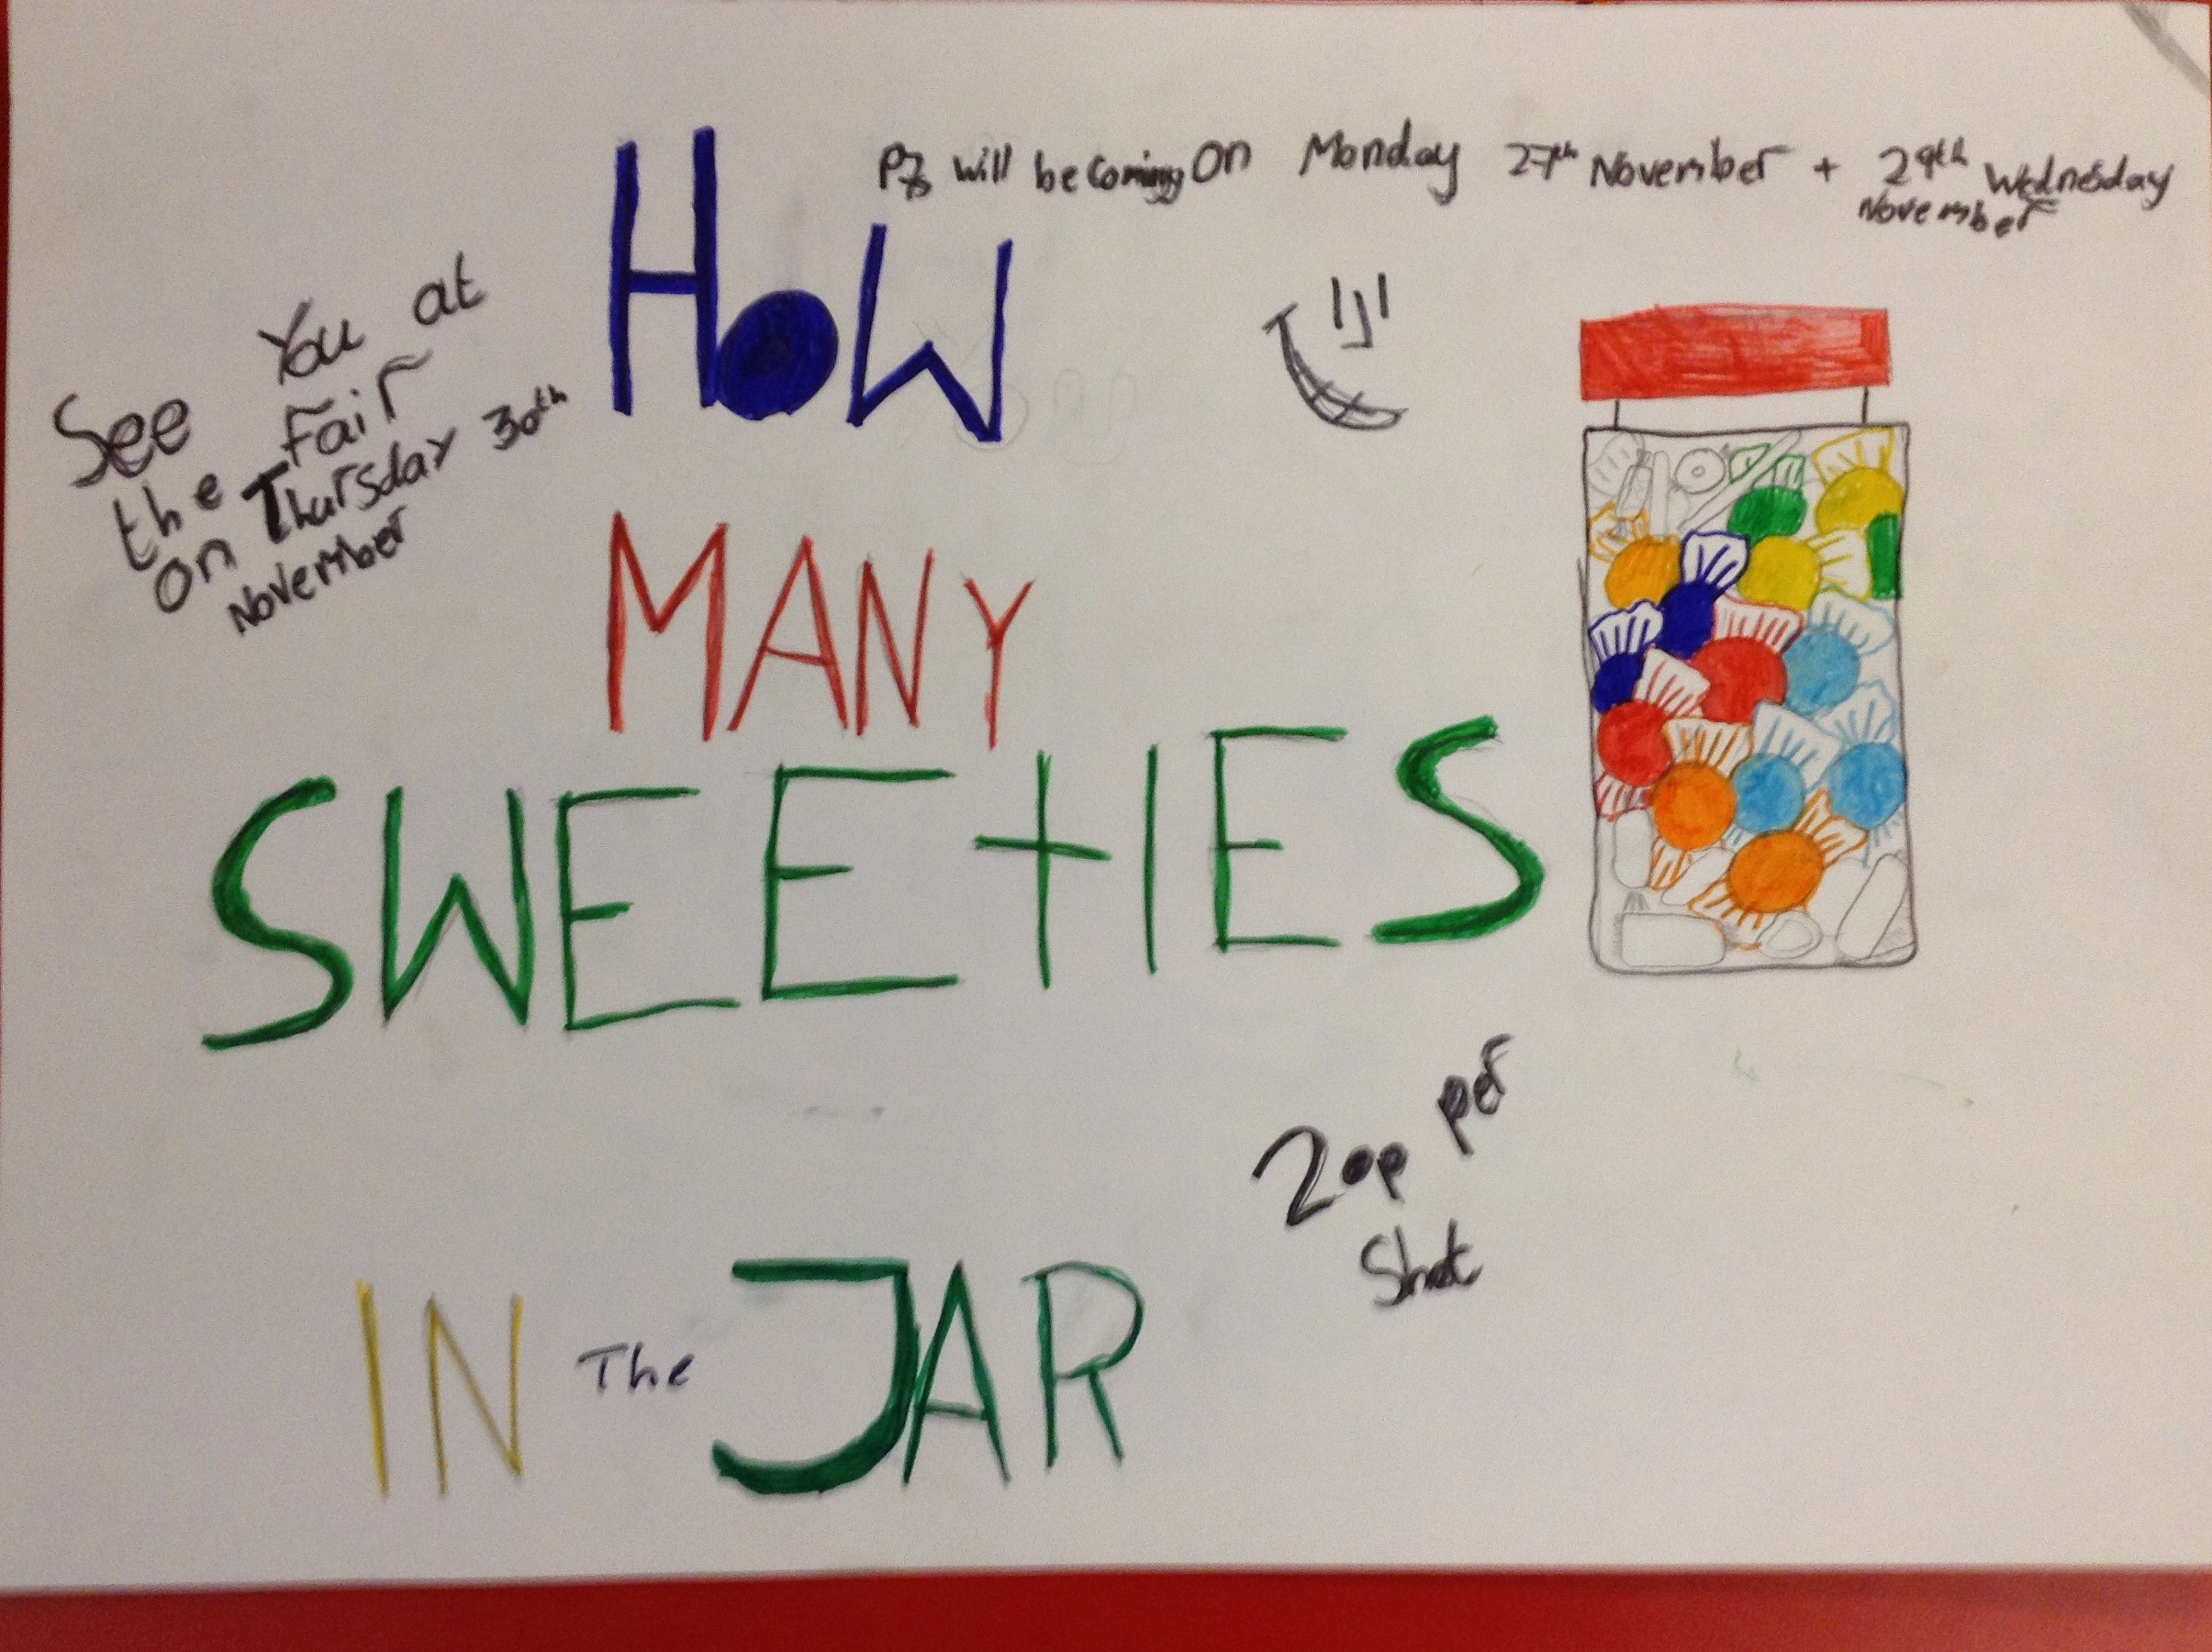 P7s will be coming on Monday 27th November + 29th Wednesday
November
See You at
the Fair
on Thursday 30th
November
HoW
MANY
SWEEtIES
IN The JAR
20p per
Shot